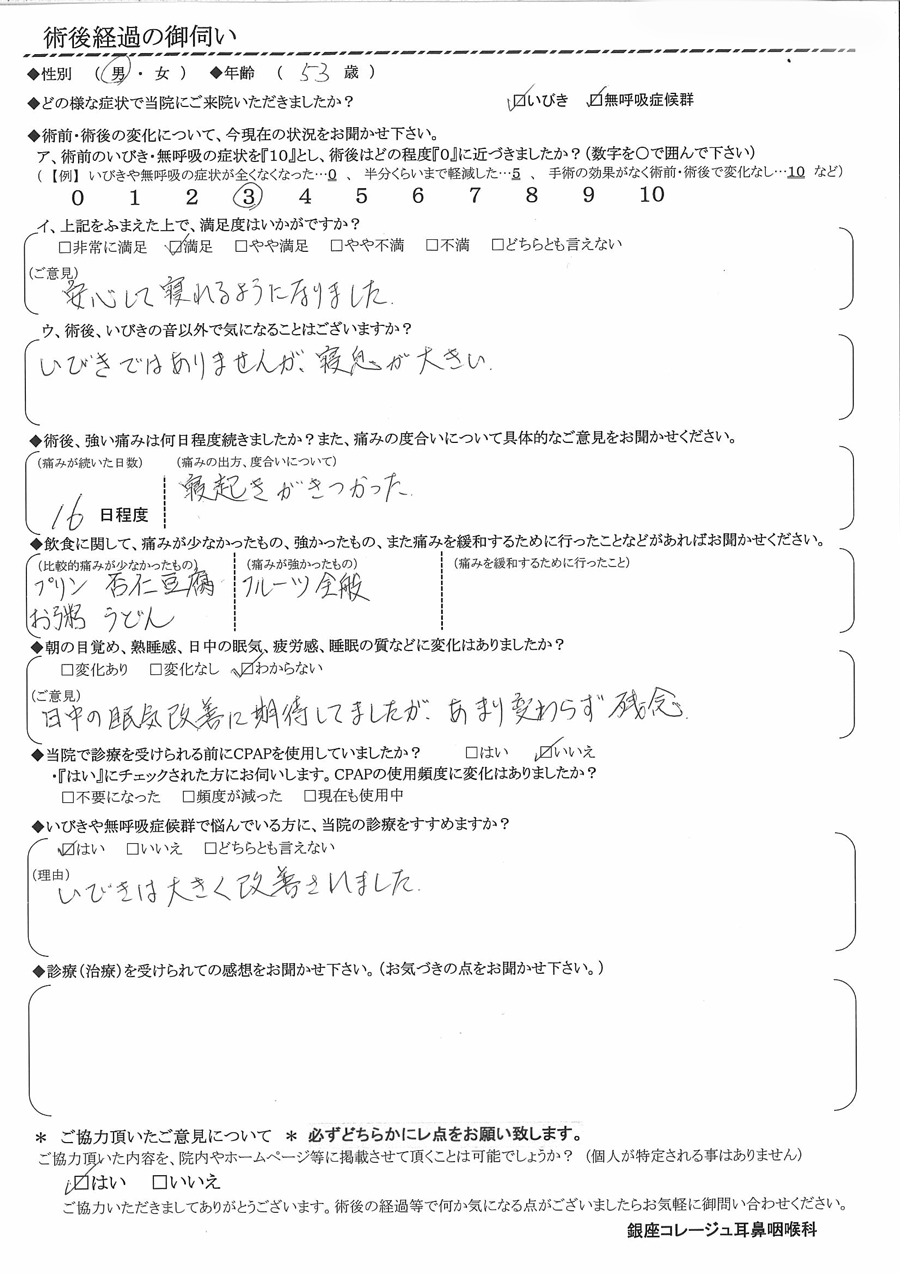 術後経過の御伺い
◆性別 ( 男 ・ 女 ) ◆年齢 ( 53 歳 )
◆どの様な症状で当院にご来院いただきましたか? ☑いびき ☑無呼吸症候群
◆術前・術後の変化について、今現在の状況をお聞かせ下さい。
ア、術前のいびき・無呼吸の症状を『10』とし、術後はどの程度『0』に近づきましたか?(数字を○で囲んで下さい)
(【例】いびきや無呼吸の症状が全くなくなった…0 、 半分くらいまで軽減した…5 、 手術の効果がなく術前・術後で変化なし…10 など)
0 1 2 3 4 5 6 7 8 9 10
イ、上記をふまえた上で、満足度はいかがですか?
□非常に満足 ☑満足 □やや満足 □やや不満 □不満 □どちらとも言えない
(ご意見)
安心して寝れるようになりました.
ウ、術後、いびきの音以外で気になることはございますか?
いびきではありませんが、寝息が大きい.
◆術後、強い痛みは何日程度続きましたか?また、痛みの度合いについて具体的なご意見をお聞かせください。
(痛みが続いた日数) (痛みの出方、度合いについて)
16 日程度 寝起きがきつかった.
◆飲食に関して、痛みが少なかったもの、強かったもの、また痛みを緩和するために行ったことなどがあればお聞かせください。
(比較的痛みが少なかったもの) (痛みが強かったもの) (痛みを緩和するために行ったこと)
プリン 杏仁豆腐 フルーツ全般
お粥 うどん
◆朝の目覚め、熟睡感、日中の眠気、疲労感、睡眠の質などに変化はありましたか?
□変化あり □変化なし ☑わからない
(ご意見)
日中の眠気改善に期待してましたが、あまり変わらず残念.
◆当院で診療を受けられる前にCPAPを使用していましたか? □はい ☑いいえ
・『はい』にチェックされた方にお伺いします。CPAPの使用頻度に変化はありましたか?
□不要になった □頻度が減った □現在も使用中
◆いびきや無呼吸症候群で悩んでいる方に、当院の診療をすすめますか?
☑はい □いいえ □どちらとも言えない
(理由)
いびきは大きく改善されました.
◆診療(治療)を受けられての感想をお聞かせ下さい。(お気づきの点をお聞かせ下さい。)
* ご協力頂いたご意見について * 必ずどちらかにレ点をお願い致します。
ご協力頂いた内容を、院内やホームページ等に掲載させて頂くことは可能でしょうか? (個人が特定される事はありません)
☑はい □いいえ
ご協力いただきましてありがとうございます。術後の経過等で何か気になる点がございましたらお気軽に御問い合わせください。
銀座コレージュ耳鼻咽喉科